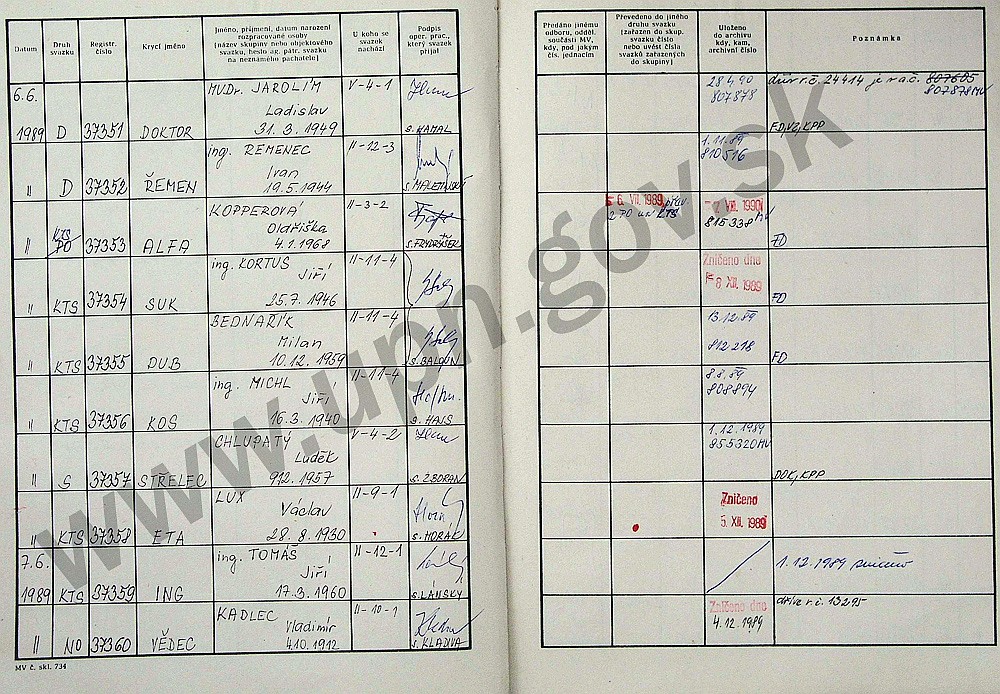 Datum
Druh svazku
Registr. číslo
Krycí jméno
Jméno, příjmení, datum narození
rozpracované osoby
(název skupiny nebo objektového
svazku, heslo ag. pátr. svazku
na neznámého pachatele)
U koho se
svazek
nachází
Podpis
oper. prac.,
který svazek
přijal
Předáno jinému
odboru, odděl.
součásti MV,
kdy, pod jakým
čís. jednacím
Převedeno do jiného
druhu svazku
(zařazen do skup.
svazku číslo
nebo uvést čísla
svazků zařazených
do skupiny)
Uloženo
do archivu
kdy, kam,
archivní číslo
Poznámka
6.6.
1989 D 37351 DOKTOR
MVDr. JAROLÍM
Ladislav
31. 3. 1949
V-4-1
s. KAMAL
28.4.90
807878
dřív r.č. 24414 je v a.č. 807605
807878 MV
FD, VZ, KPP
" D 37352 ŘEMEN
ing. REMENEC
Ivan
19.5.1944
II-12-3
1.11.89
810516
" KTS PO 37353 ALFA
KOPPEROVÁ
Oldřiška
4.1.1968
II-3-2
s. FRYDRÝŠEK
6. VII. 1989
z PO na KTS
VIII. 1990
815338 MV
FD
" KTS 37354 SUK
ing. KORTUS
Jiří
25.7. 1946
II-11-4
Zničeno dne
6 XII. 1989
FD
" KTS 37355 DUB
BEDNAŘÍK
Milan
10.12. 1959
II-11-4
s. BALOUN
13.12.89
812218
FD
" KTS 37356 KOS
ing. MICHL
Jiří
16.3. 1940
II-11-4
s. HAIS
8.8.89
808894
" S 37357 STŘELEC
CHLUPATÝ
Luděk
9.12. 1957
V-4-2
s. ZBORAN
1.12.1989
855320 MV
DOK, KPP
" KTS 37358 ETA
LUX
Václav
28. 8. 1930
II-9-1
s. HORÁK
Zničeno
5. XII. 1989
7.6.
1989 KTS 37359 ING
ing. TOMÁŠ
Jiří
17.3. 1960
II-12-1
s. LÁNSKÝ
1.12.1989 zničeno
" NO 37360 VĚDEC
KADLEC
Vladimír
4.10. 1912
II-10-1
s. KLADIVA
Zničeno dne
4.12.1989
dříve r.č. 13295
MV č. skl. 734
www.upn.gov.sk